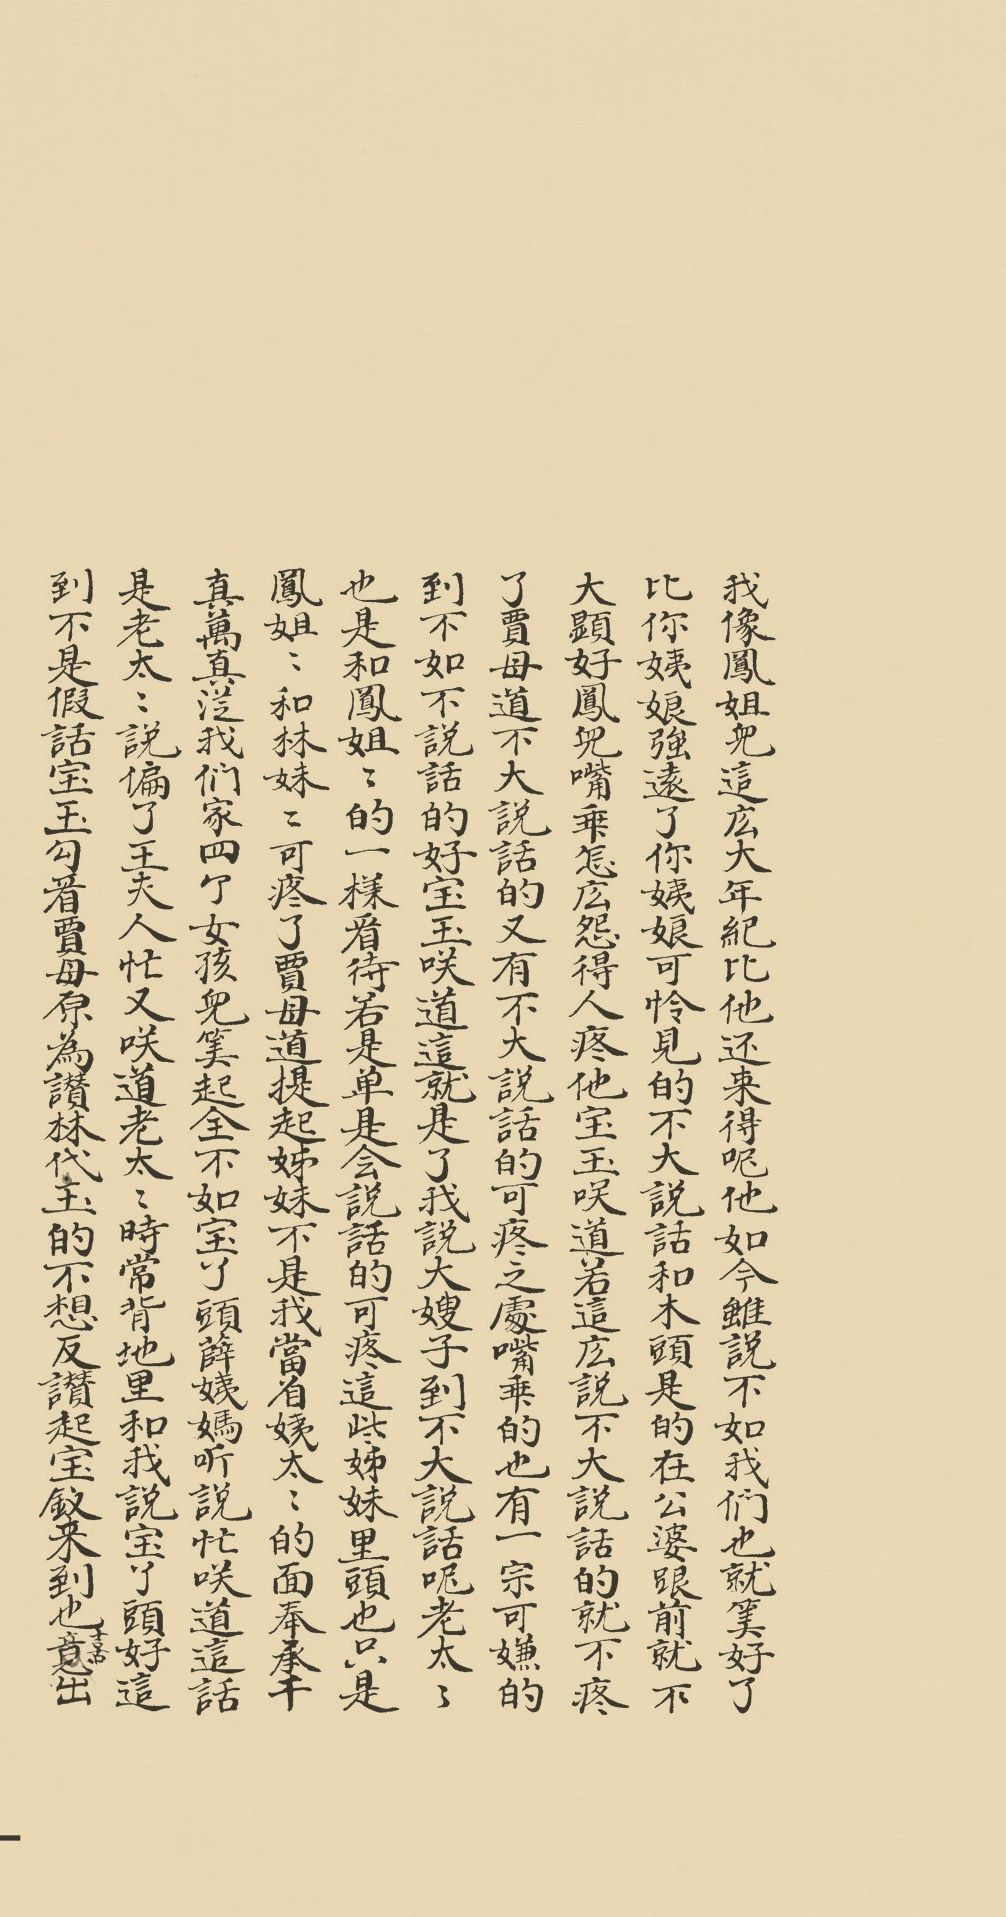 我像鳳姐兒這庅大年紀比他还来得呢他如今雖説不如我们也就筭好了
比你姨娘強遠了你姨娘可怜見的不大説話和木頭是的在公婆跟前就不
大顕好鳳兒嘴乖怎庅怨得人疼他宝玉咲道若這庅説不大説話的就不疼
了賈母道不大説話的又有不大説話的可疼之處嘴乖的也有一宗可嫌的
到不如不説話的好宝玉咲道這就是了我説大嫂子到不大説話呢老太〻
也是和鳳姐〻的一樣看待若是单是会説話的可疼這些姊妹里頭也只是
鳳姐〻和林妹〻可疼了賈母道提起姊妹不是我當着姨太〻的面奉承千
真萬真從我们家四个女孩兒筭起全不如宝丫頭薛姨媽听説忙咲道這話
是老太〻説偏了王夫人忙又咲道老太〻時常背地里和我説宝丫頭好這
到不是假話宝玉勾着賈母原為讃林代玉的不想反讃起宝釵来到也意出